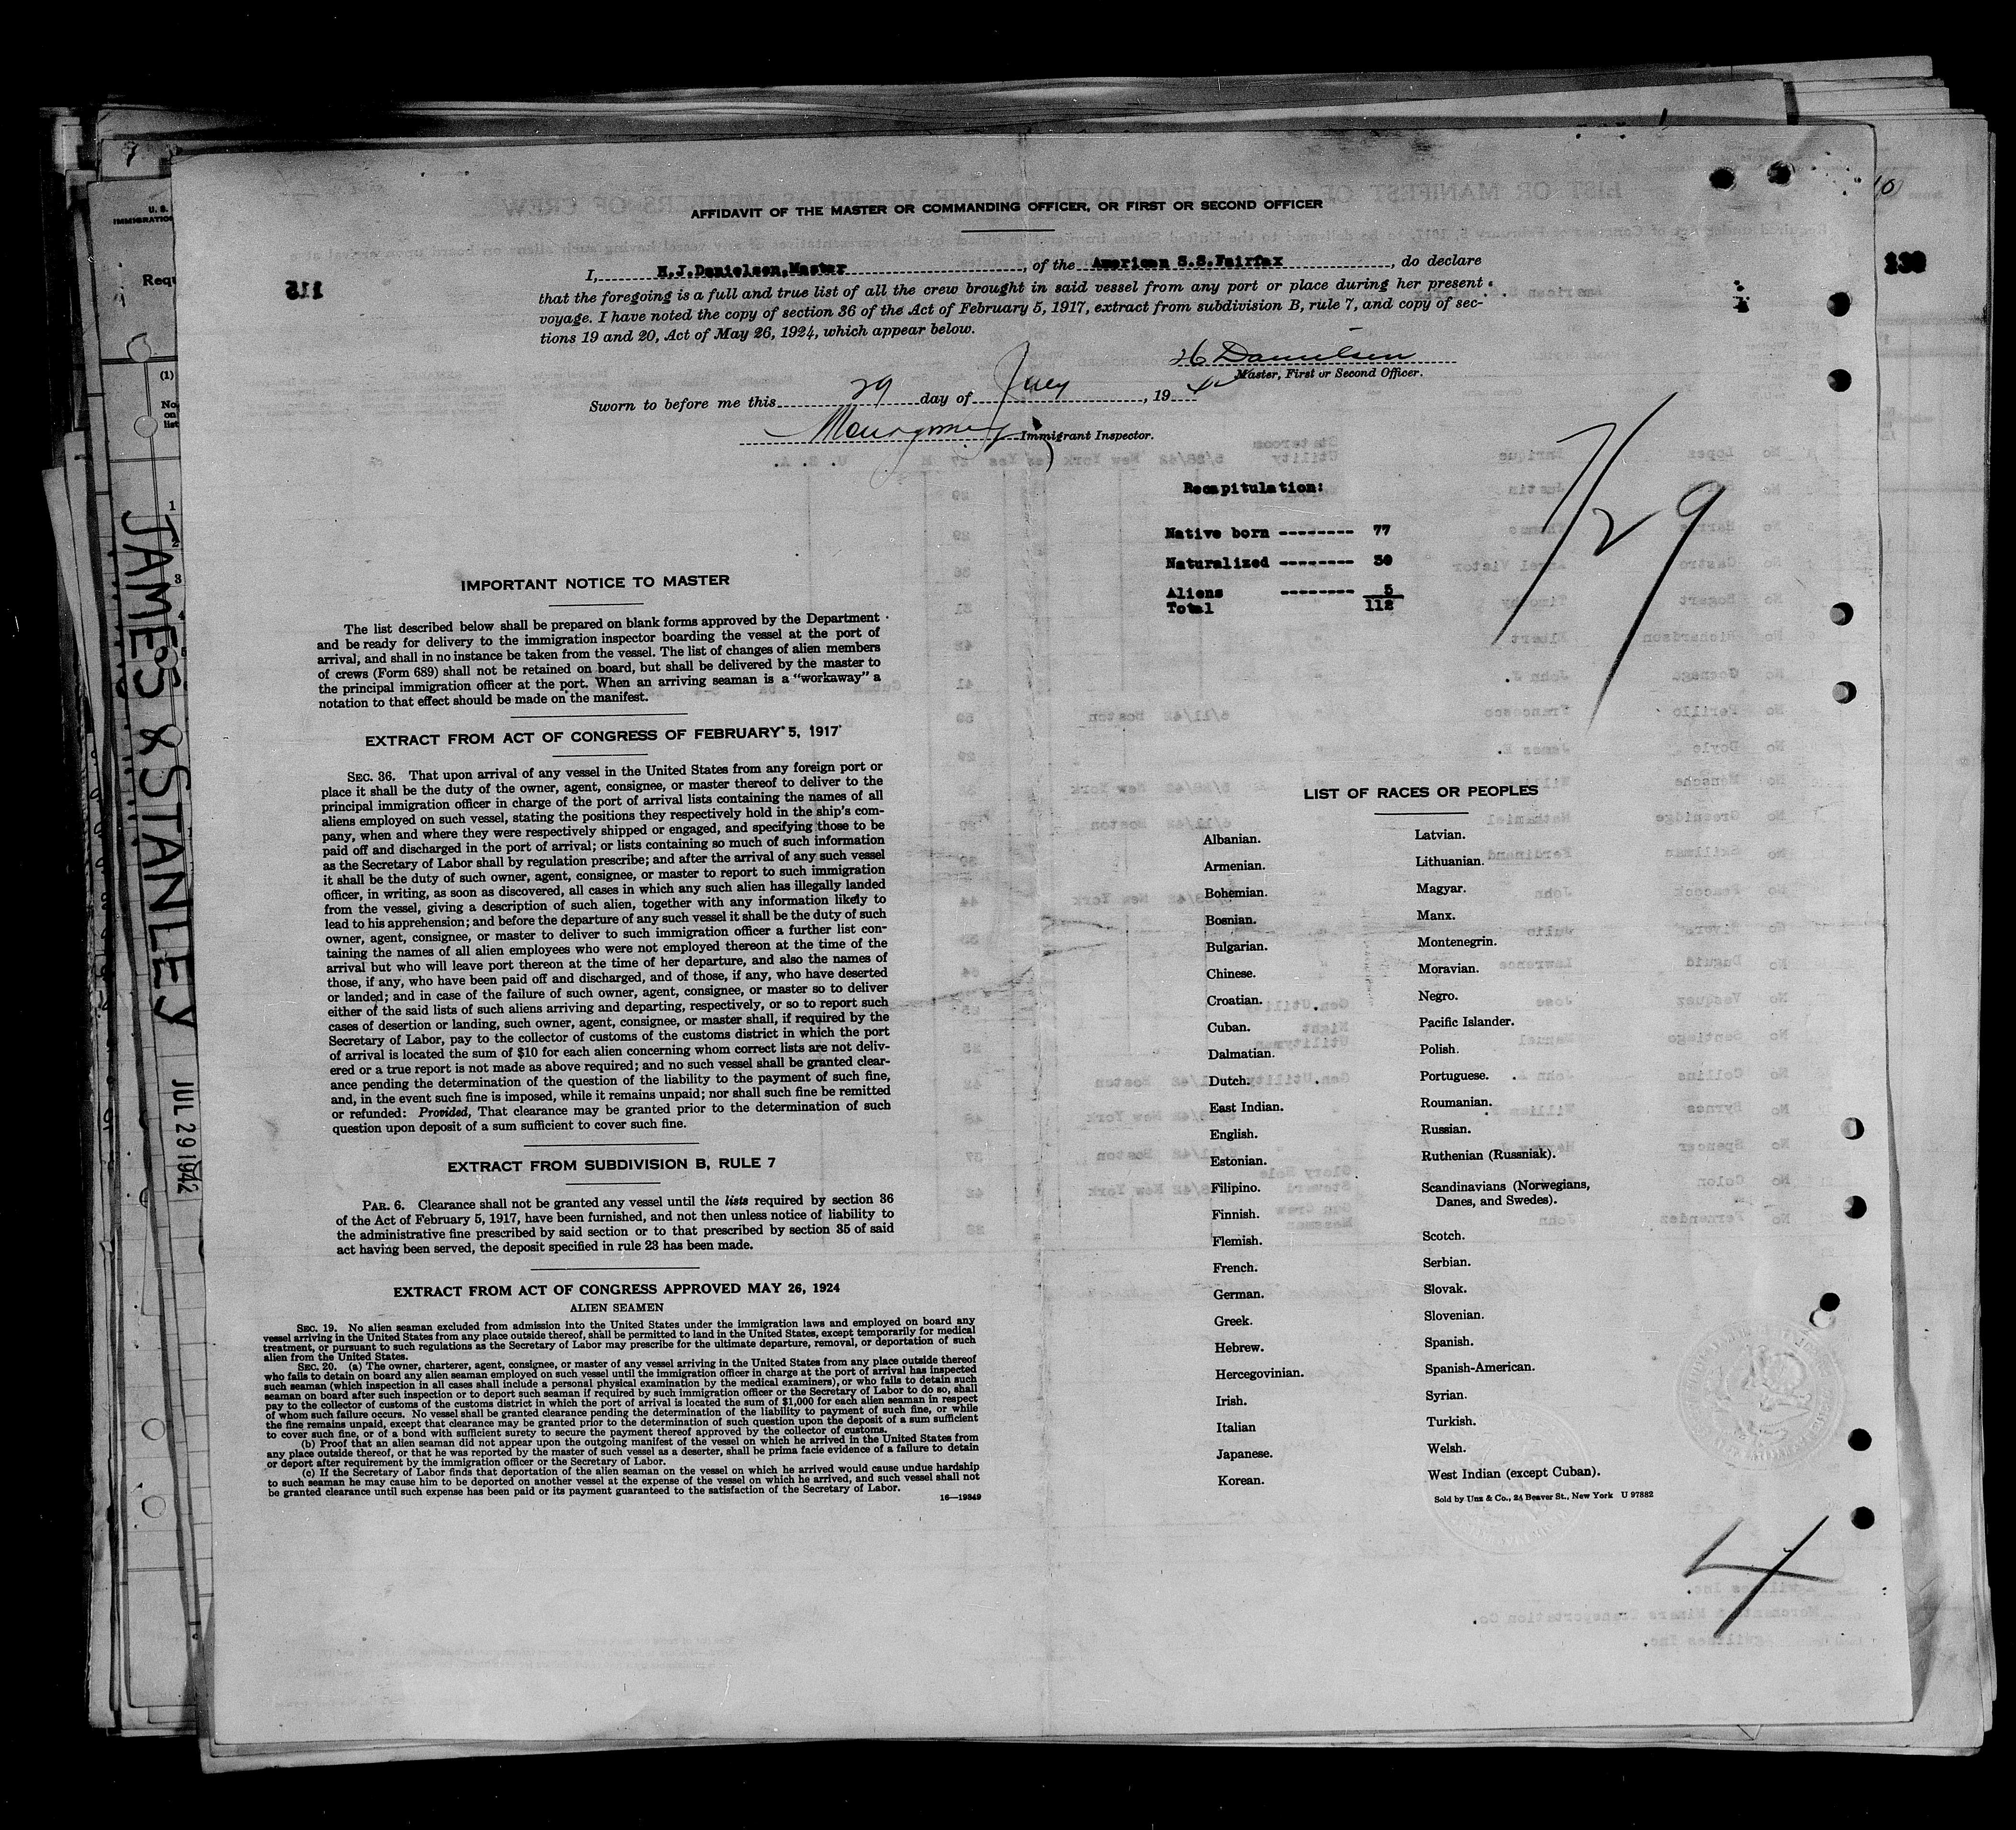 AFFIDAVIT OF THE MASTER OR COMMANDING OFFICER, OR FIRST OR SECOND OFFICER
I, H.J.Danielsen,Master, of the American S.S.Fairfax, do declare
that the foregoing is a full and true list of all the crew brought in said vessel from any port or place during her present
voyage. I have noted the copy of section 36 of the Act of February 5, 1917, extract from subdivision B, rule 7, and copy of sec-
tions 19 and 20, Act of May 26, 1924, which appear below.
H Danielsen
Master, First or Second Officer.
Sworn to before me this 29 day of July, 19
Immigrant Inspector.
7/29
Recapitulation:
Native born -------- 77
Naturalized -------- 30
Aliens -------- 5
Total 112
IMPORTANT NOTICE TO MASTER
The list described below shall be prepared on blank forms approved by the Department
and be ready for delivery to the immigration inspector boarding the vessel at the port of
arrival, and shall in no instance be taken from the vessel. The list of changes of alien members
of crews (Form 689) shall not be retained on board, but shall be delivered by the master to
the principal immigration officer at the port. When an arriving seaman is a "workaway" a
notation to that effect should be made on the manifest.
EXTRACT FROM ACT OF CONGRESS OF FEBRUARY 5, 1917
SEC. 36. That upon arrival of any vessel in the United States from any foreign port or
place it shall be the duty of the owner, agent, consignee, or master thereof to deliver to the
principal immigration officer in charge of the port of arrival lists containing the names of all
aliens employed on such vessel, stating the positions they respectively hold in the ship's com-
pany, when and where they were respectively shipped or engaged, and specifying those to be
paid off and discharged in the port of arrival; or lists containing so much of such information
as the Secretary of Labor shall by regulation prescribe; and after the arrival of any such vessel
it shall be the duty of such owner, agent, consignee, or master to report to such immigration
officer, in writing, as soon as discovered, all cases in which any such alien has illegally landed
from the vessel, giving a description of such alien, together with any information likely to
lead to his apprehension; and before the departure of any such vessel it shall be the duty of such
owner, agent, consignee, or master to deliver to such immigration officer a further list con-
taining the names of all alien employees who were not employed thereon at the time of the
arrival but who will leave port thereon at the time of her departure, and also the names of
those, if any, who have been paid off and discharged, and of those, if any, who have deserted
or landed; and in case of the failure of such owner, agent, consignee, or master so to deliver
either of the said lists of such aliens arriving and departing, respectively, or so to report such
cases of desertion or landing, such owner, agent, consignee, or master shall, if required by the
Secretary of Labor, pay to the collector of customs of the customs district in which the port
of arrival is located the sum of $10 for each alien concerning whom correct lists are not deliv-
ered or a true report is not made as above required; and no such vessel shall be granted clear-
ance pending the determination of the question of the liability to the payment of such fine,
and, in the event such fine is imposed, while it remains unpaid; nor shall such fine be remitted
or refunded: Provided, That clearance may be granted prior to the determination of such
question upon deposit of a sum sufficient to cover such fine.
EXTRACT FROM SUBDIVISION B, RULE 7
PAR. 6. Clearance shall not be granted any vessel until the lists required by section 36
of the Act of February 5, 1917, have been furnished, and not then unless notice of liability to
the administrative fine prescribed by said section or to that prescribed by section 35 of said
act having been served, the deposit specified in rule 23 has been made.
EXTRACT FROM ACT OF CONGRESS APPROVED MAY 26, 1924
ALIEN SEAMEN
SEC. 19. No alien seaman excluded from admission into the United States under the immigration laws and employed on board any
vessel arriving in the United States from any place outside thereof, shall be permitted to land in the United States, except temporarily for medical
treatment, or pursuant to such regulations as the Secretary of Labor may prescribe for the ultimate departure, removal, or deportation of such
alien from the United States.
SEC. 20. (a) The owner, charterer, agent, consignee, or master of any vessel arriving in the United States from any place outside thereof
who fails to detain on board any alien seaman employed on such vessel until the immigration officer in charge at the port of arrival has inspected
such seaman (which inspection in all cases shall include a personal physical examination by the medical examiners), or who fails to detain such
seaman on board after such inspection or to deport such seaman if required by such immigration officer or the Secretary of Labor to do so, shall
pay to the collector of customs of the customs district in which the port of arrival is located the sum of $1,000 for each alien seaman in respect
of whom such failure occurs. No vessel shall be granted clearance pending the determination of the liability to payment of such fine, or while
the fine remains unpaid, except that clearance may be granted prior to the determination of such question upon the deposit of a sum sufficient
to cover such fine, or of a bond with sufficient surety to secure the payment thereof approved by the collector of customs.
(b) Proof that an alien seaman did not appear upon the outgoing manifest of the vessel on which he arrived in the United States from
any place outside thereof, or that he was reported by the master of such vessel as a deserter, shall be prima facie evidence of a failure to detain
or deport after requirement by the immigration officer or the Secretary of Labor.
(c) If the Secretary of Labor finds that deportation of the alien seaman on the vessel on which he arrived would cause undue hardship
to such seaman he may cause him to be deported on another vessel at the expense of the vessel on which he arrived, and such vessel shall not
be granted clearance until such expense has been paid or its payment guaranteed to the satisfaction of the Secretary of Labor.
16—19849
LIST OF RACES OR PEOPLES
Albanian.
Armenian.
Bohemian.
Bosnian.
Bulgarian.
Chinese.
Croatian.
Cuban.
Dalmatian.
Dutch.
East Indian.
English.
Estonian.
Filipino.
Finnish.
Flemish.
French.
German.
Greek.
Hebrew.
Hercegovinian.
Irish.
Italian
Japanese.
Korean.
Latvian.
Lithuanian.
Magyar.
Manx.
Montenegrin.
Moravian.
Negro.
Pacific Islander.
Polish.
Portuguese.
Roumanian.
Russian.
Ruthenian (Russniak).
Scandinavians (Norwegians,
Danes, and Swedes).
Scotch.
Serbian.
Slovak.
Slovenian.
Spanish.
Spanish-American.
Syrian.
Turkish.
Welsh.
West Indian (except Cuban).
Sold by Unz & Co., 24 Beaver St., New York U 97882
4
JAMES & STANLEY JUL 29 1942
U. S.
IMMIGRATION
Requ
(1)
No
on
list
1
2
3
115